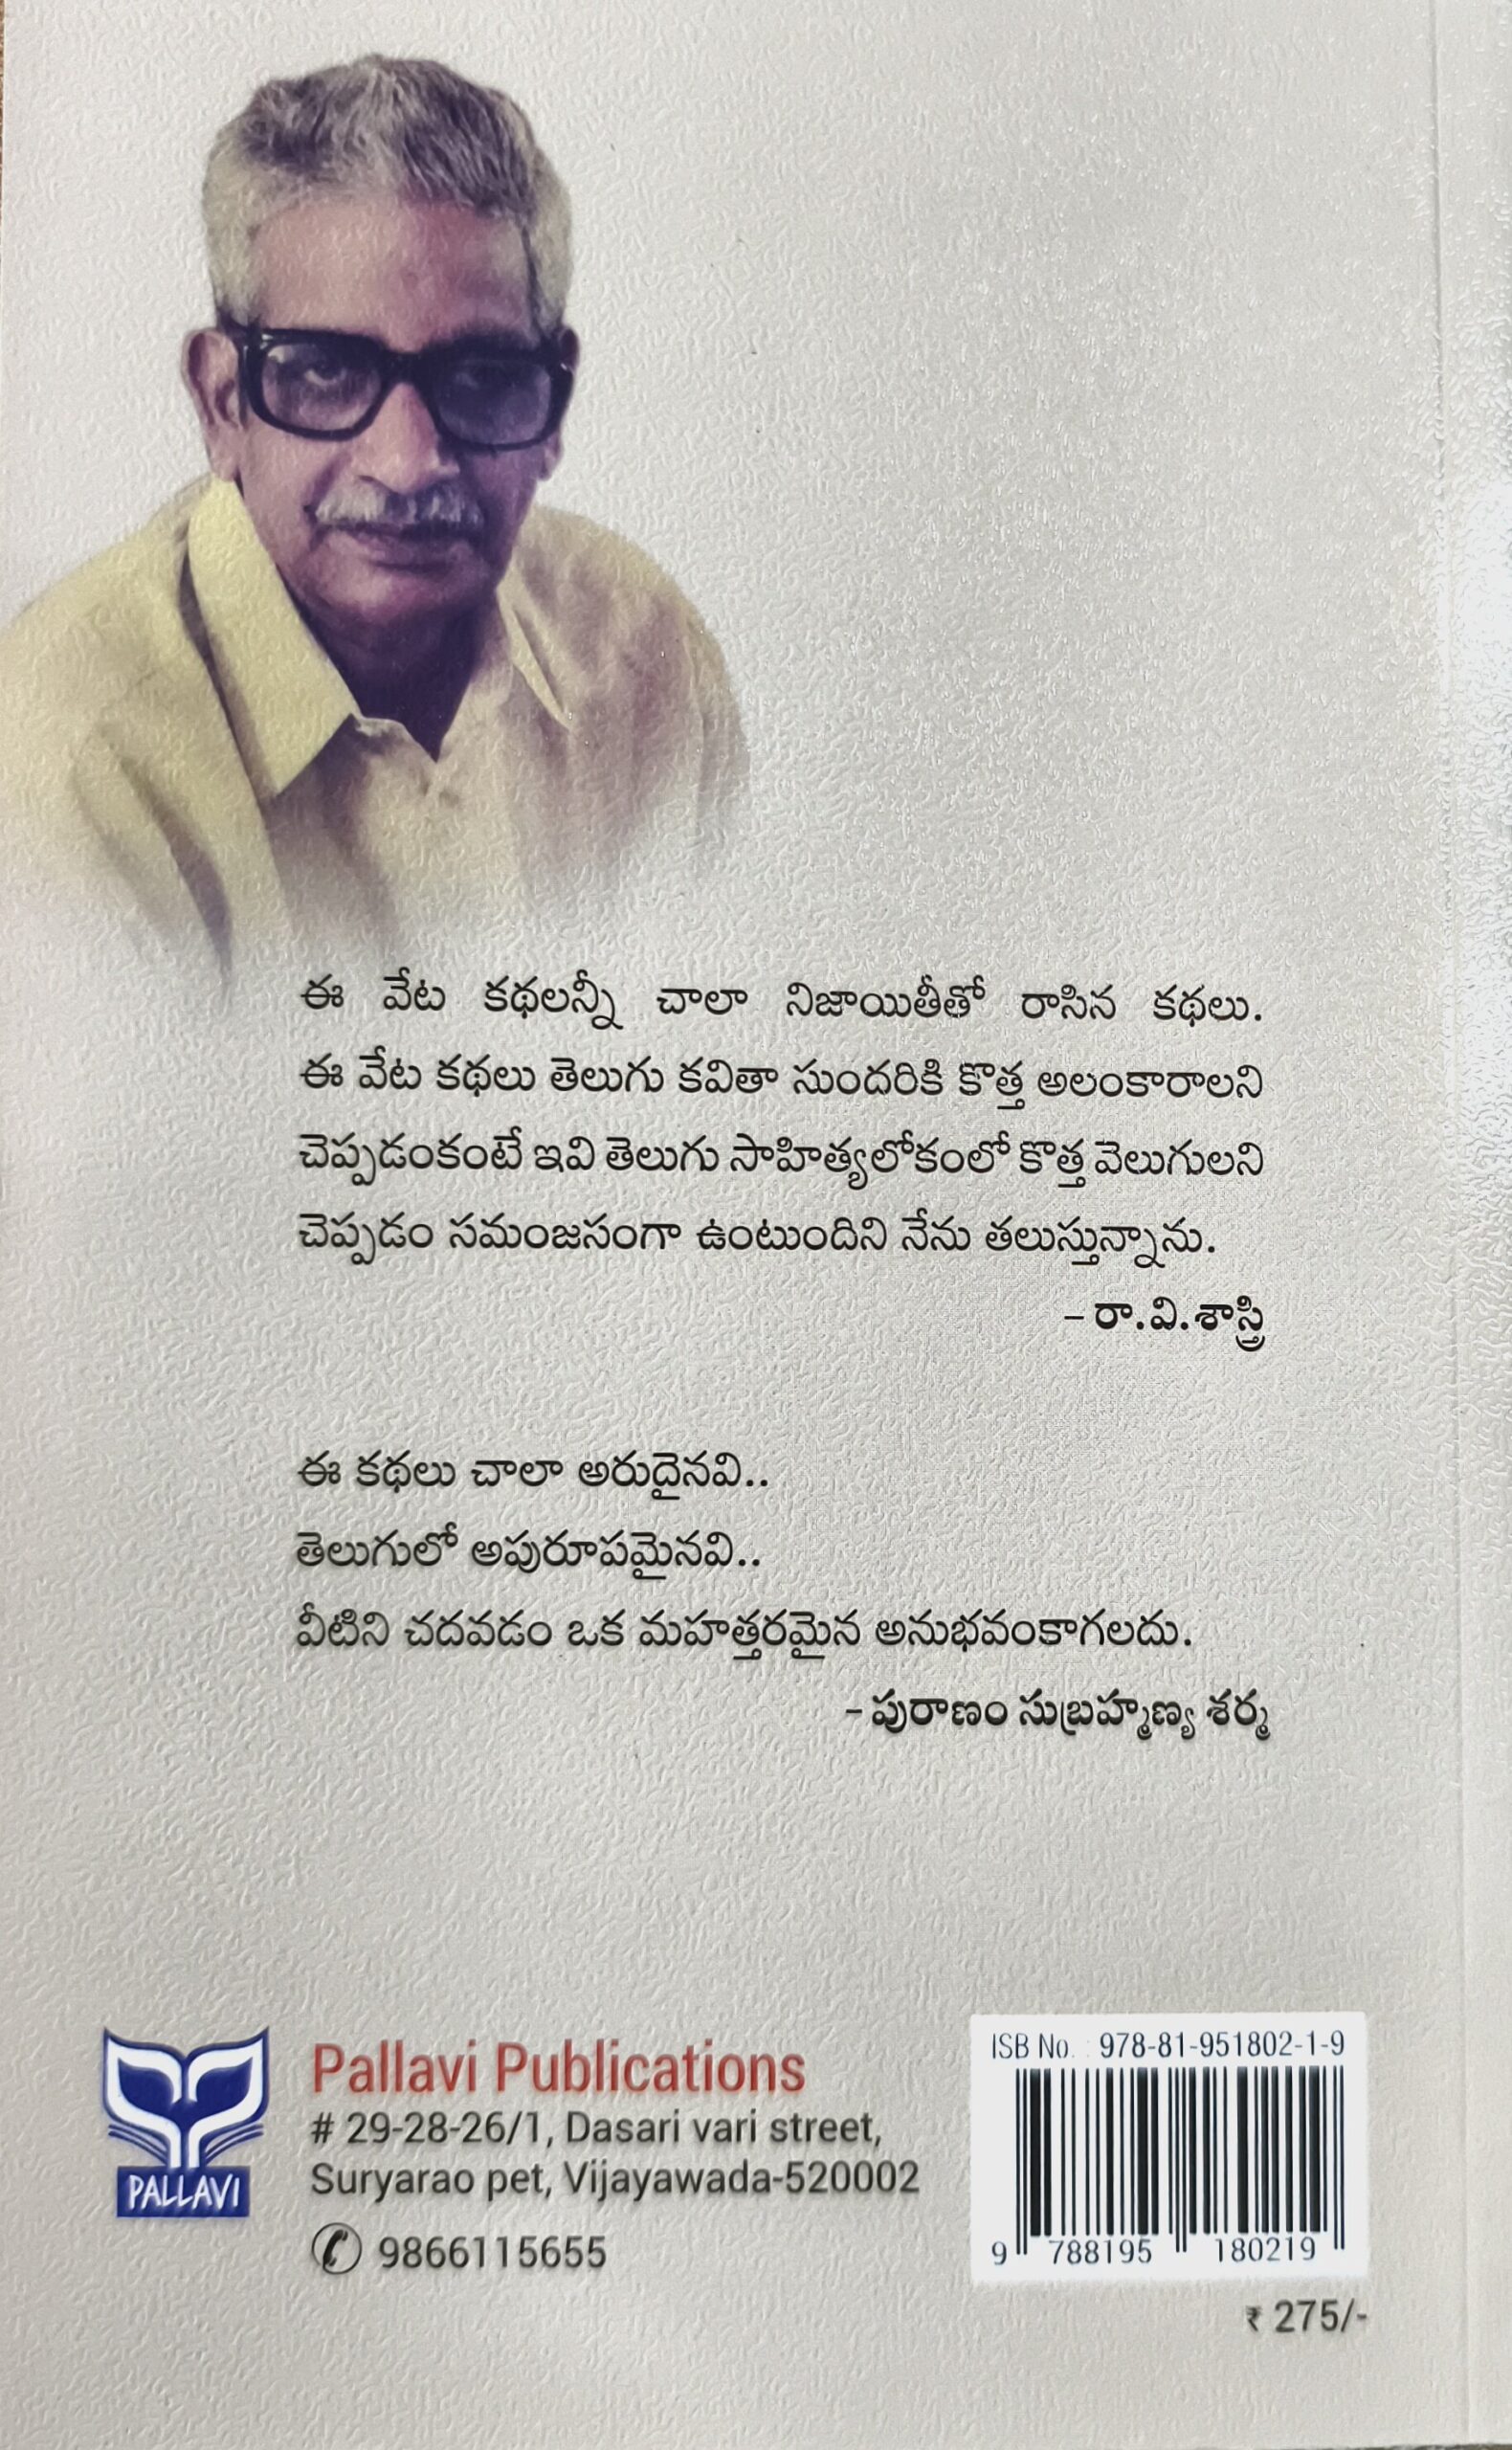 ఈ వేట కథలన్నీ చాలా నిజాయితీతో రాసిన కథలు.
ఈ వేట కథలు తెలుగు కవితా సుందరికి కొత్త అలంకారాలని
చెప్పడంకంటే ఇవి తెలుగు సాహిత్యలోకంలో కొత్త వెలుగులని
చెప్పడం సమంజసంగా ఉంటుందిని నేను తలుస్తున్నాను.
– రా.వి.శాస్త్రి
ఈ కథలు చాలా అరుదైనవి..
తెలుగులో అపురూపమైనవి..
వీటిని చదవడం ఒక మహత్తరమైన అనుభవంకాగలదు.
– పురాణం సుబ్రహ్మణ్య శర్మ
PALLAVI
Pallavi Publications
# 29-28-26/1, Dasari vari street,
Suryarao pet, Vijayawada-520002
✆ 9866115655
ISB No. : 978-81-951802-1-9
9 788195 180219
₹ 275/-